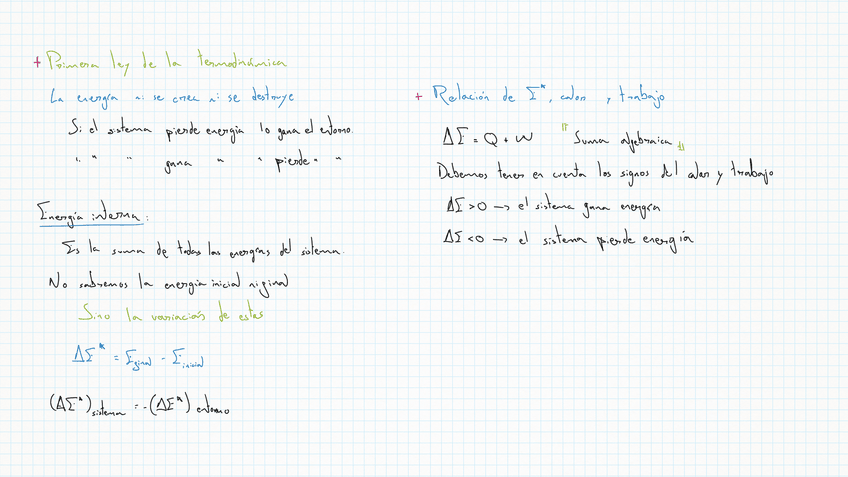 + Primera ley de la termodinámica
La energía ni se crea ni se destruye
Si el sistema pierde energía lo gana el entorno.
" " " gana " " pierde " "
Energía interna:
Es la suma de todas las energías del sistema.
No sabremos la energía inicial ni final
Sino la variación de estas
ΔE* = E final - E inicial
(ΔE*) sistema = -(ΔE*) entorno
+ Relación de E*, calor y trabajo
ΔE = Q + W "Suma algebraica"
Debemos tener en cuenta los signos del calor y trabajo
ΔE > 0 → el sistema gana energía
ΔE < 0 → el sistema pierde energía